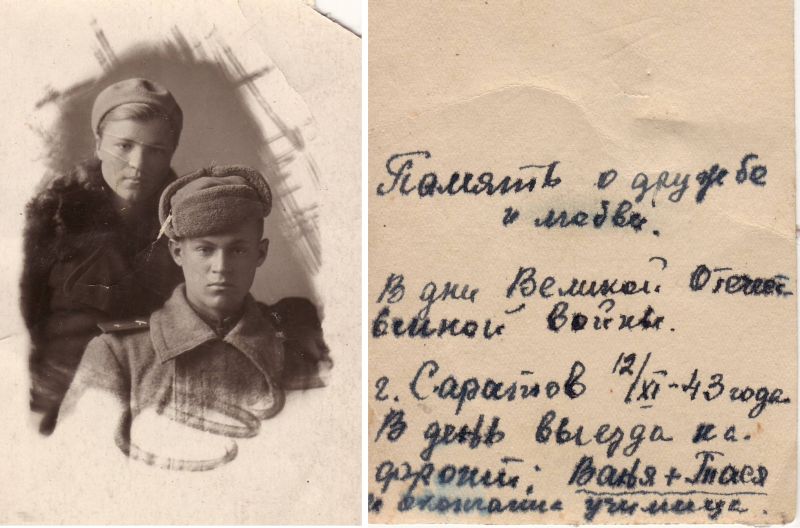 Память о дружбе
и любви.
В дни Великой Отечест
венной войны.
г. Саратов 12/XI-43 года.
В день выезда на
фронт; Ваня + Тася
и окончания училища.